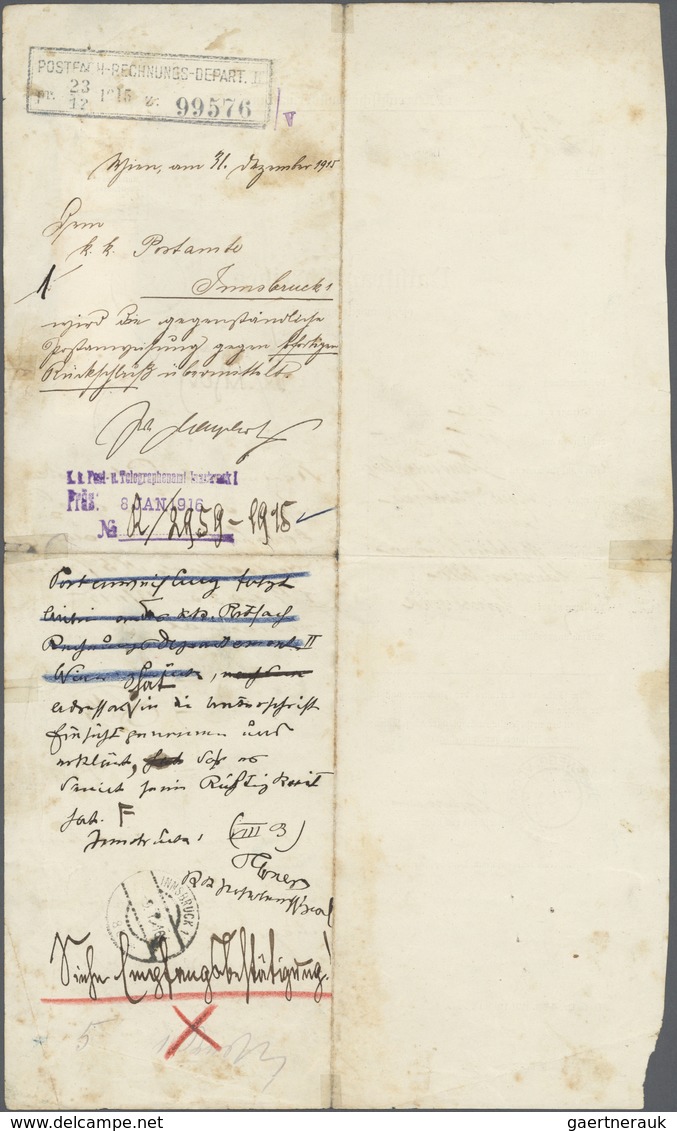 POSTFACH-RECHNUNGS-DEPART. II
pr. 23/12 1915 Z. 99576
V
Wien, am 31. Dezember 1915
Dem
k. k. Postamte
1
Innsbruck 1
wird die gegenständliche
Postanweisung gegen sofortigen
Rückschluß übermittelt.
K. k. Post- u. Telegraphenamt Innsbruck I
Präs: 8 JAN 1916
№ R/2959-1915
Postanweisung folgt
k.k. Postfach
Rechnungs Departement II
Wien zurück,
Adressat hat in die Unterschrift
Einsicht genommen und
erklärt, daß es
damit seine Richtigkeit
hat.
Innsbruck 1 (VIII 3)
INNSBRUCK 1
Siehe Empfangsbestätigung!
5
gaertnerauk